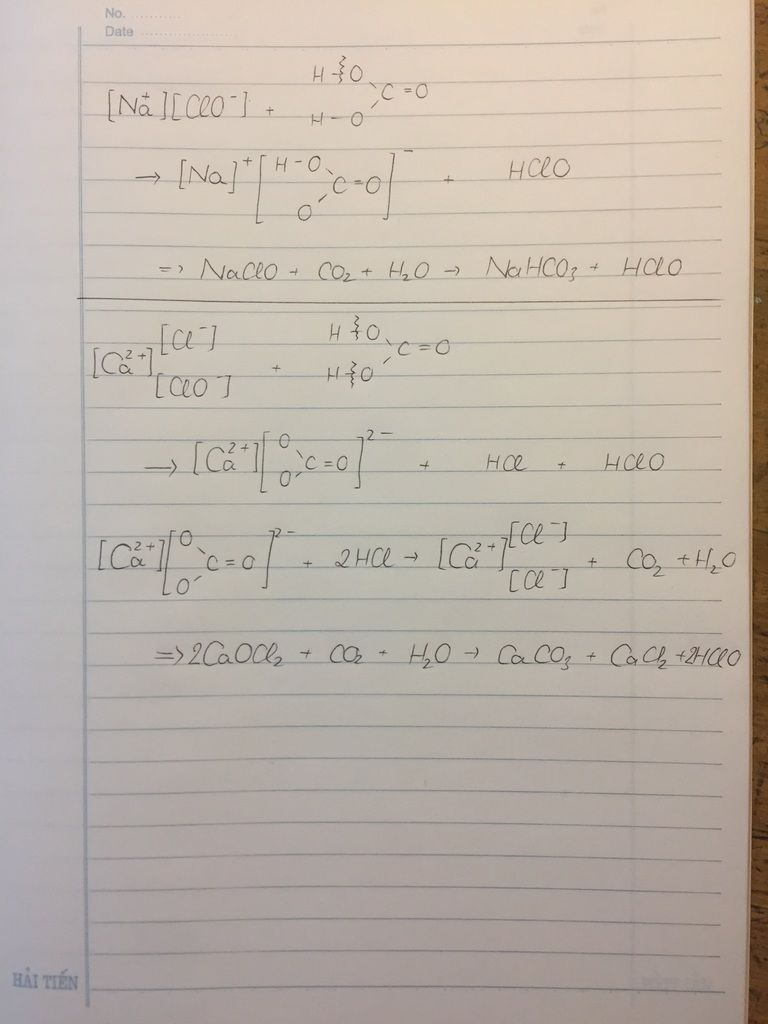 No. ...........
Date .....................
[Na⁺][ClO⁻] + H-O H-O C=O
→ [Na]⁺ [H-O O C=O]⁻ + HClO
=> NaClO + CO₂ + H₂O → NaHCO₃ + HClO
[Ca²⁺] [Cl⁻] [ClO⁻] + H-O H-O C=O
→ [Ca²⁺] [O O C=O]²⁻ + HCl + HClO
[Ca²⁺] [O O C=O]²⁻ + 2HCl → [Ca²⁺] [Cl⁻] [Cl⁻] + CO₂ + H₂O
=> 2CaOCl₂ + CO₂ + H₂O → CaCO₃ + CaCl₂ + 2HClO
HẢI TIẾN